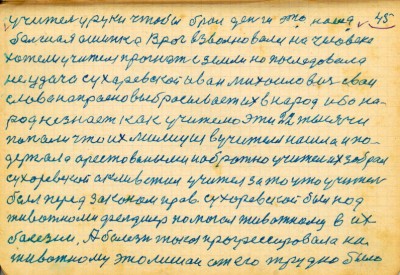 учителя руки чтобы брал деньги то наша 45
большая ошибка Врос взволновали на человека
хотел учителя прогнать с земли но последовала
не удача сухаревской иван михаилович свои
слова напрасно выбрасывает их в народ ибо на-
род незнает как учителю эти 22 тысячи
попали что их милиция в учителя нашла и по-
держала арестоваными и обратно учителю их забрал
сухаревской а клеветал учителя за то что учитель
был перед законом прав сухаревской был под
животному фельдшер помогал животному в их
болезни. А болезнь тоже прогрессировала на
животному этой от его трудно было